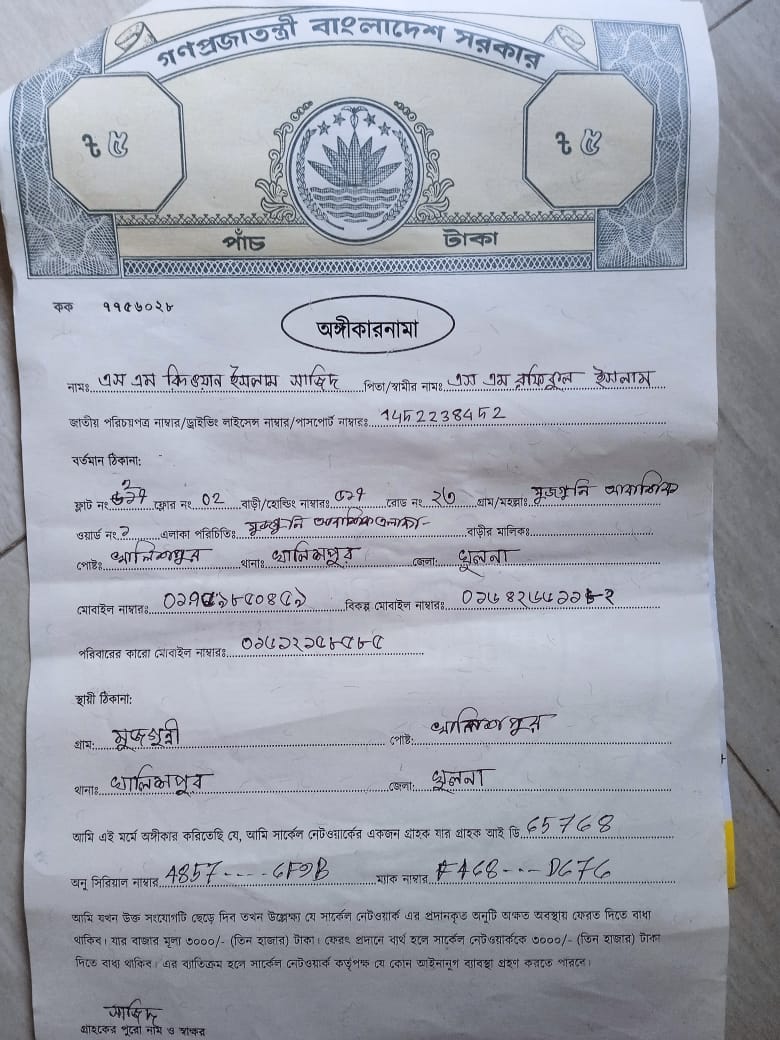 গণপ্রজাতন্ত্রী বাংলাদেশ সরকার
৳ ৫ ৳ ৫
পাঁচ টাকা
কক ৭৭৫৬০২৮
অঙ্গীকারনামা
নামঃ এস এম রিওয়ান ইসলাম সাজিদ পিতা/স্বামীর নামঃ এস এম রফিকুল ইসলাম
জাতীয় পরিচয়পত্র নাম্বার/ড্রাইভিং লাইসেন্স নাম্বার/পাসপোর্ট নাম্বারঃ 1452238452
বর্তমান ঠিকানা:
ফ্লাট নং ফ্লোর নং 02 বাড়ী/হোল্ডিং নাম্বারঃ রোড নং ২৩ গ্রাম/মহল্লাঃ মুজগুন্নি আবাসিক
ওয়ার্ড নং এলাকা পরিচিতিঃ মুজগুন্নি আবাসিক এলাকা বাড়ীর মালিকঃ
পোষ্টঃ খালিশপুর থানাঃ খালিশপুর জেলা: খুলনা
মোবাইল নাম্বারঃ বিকল্প মোবাইল নাম্বারঃ
পরিবারের কারো মোবাইল নাম্বারঃ
স্থায়ী ঠিকানা:
গ্রাম: মুজগুন্নী পোষ্ট: খালিশপুর
থানাঃ খালিশপুর জেলা: খুলনা
আমি এই মর্মে অঙ্গীকার করিতেছি যে, আমি সার্কেল নেটওয়ার্কের একজন গ্রাহক যার গ্রাহক আই ডি 65768
অনু সিরিয়াল নাম্বার 4857 ---- 6F9B ম্যাক নাম্বার F468 --- D676
আমি যখন উক্ত সংযোগটি ছেড়ে দিব তখন উল্লেক্ষ্য যে সার্কেল নেটওয়ার্ক এর প্রদানকৃত অনুটি অক্ষত অবস্থায় ফেরত দিতে বাধ্য
থাকিব। যার বাজার মূল্য ৩০০০/- (তিন হাজার) টাকা। ফেরৎ প্রদানে ব্যর্থ হলে সার্কেল নেটওয়ার্ককে ৩০০০/- (তিন হাজার) টাকা
দিতে বাধ্য থাকিব। এর ব্যতিক্রম হলে সার্কেল নেটওয়ার্ক কর্তৃপক্ষ যে কোন আইনানুগ ব্যাবস্থা গ্রহণ করতে পারবে।
সাজিদ
গ্রাহকের পুরো নাম ও স্বাক্ষর